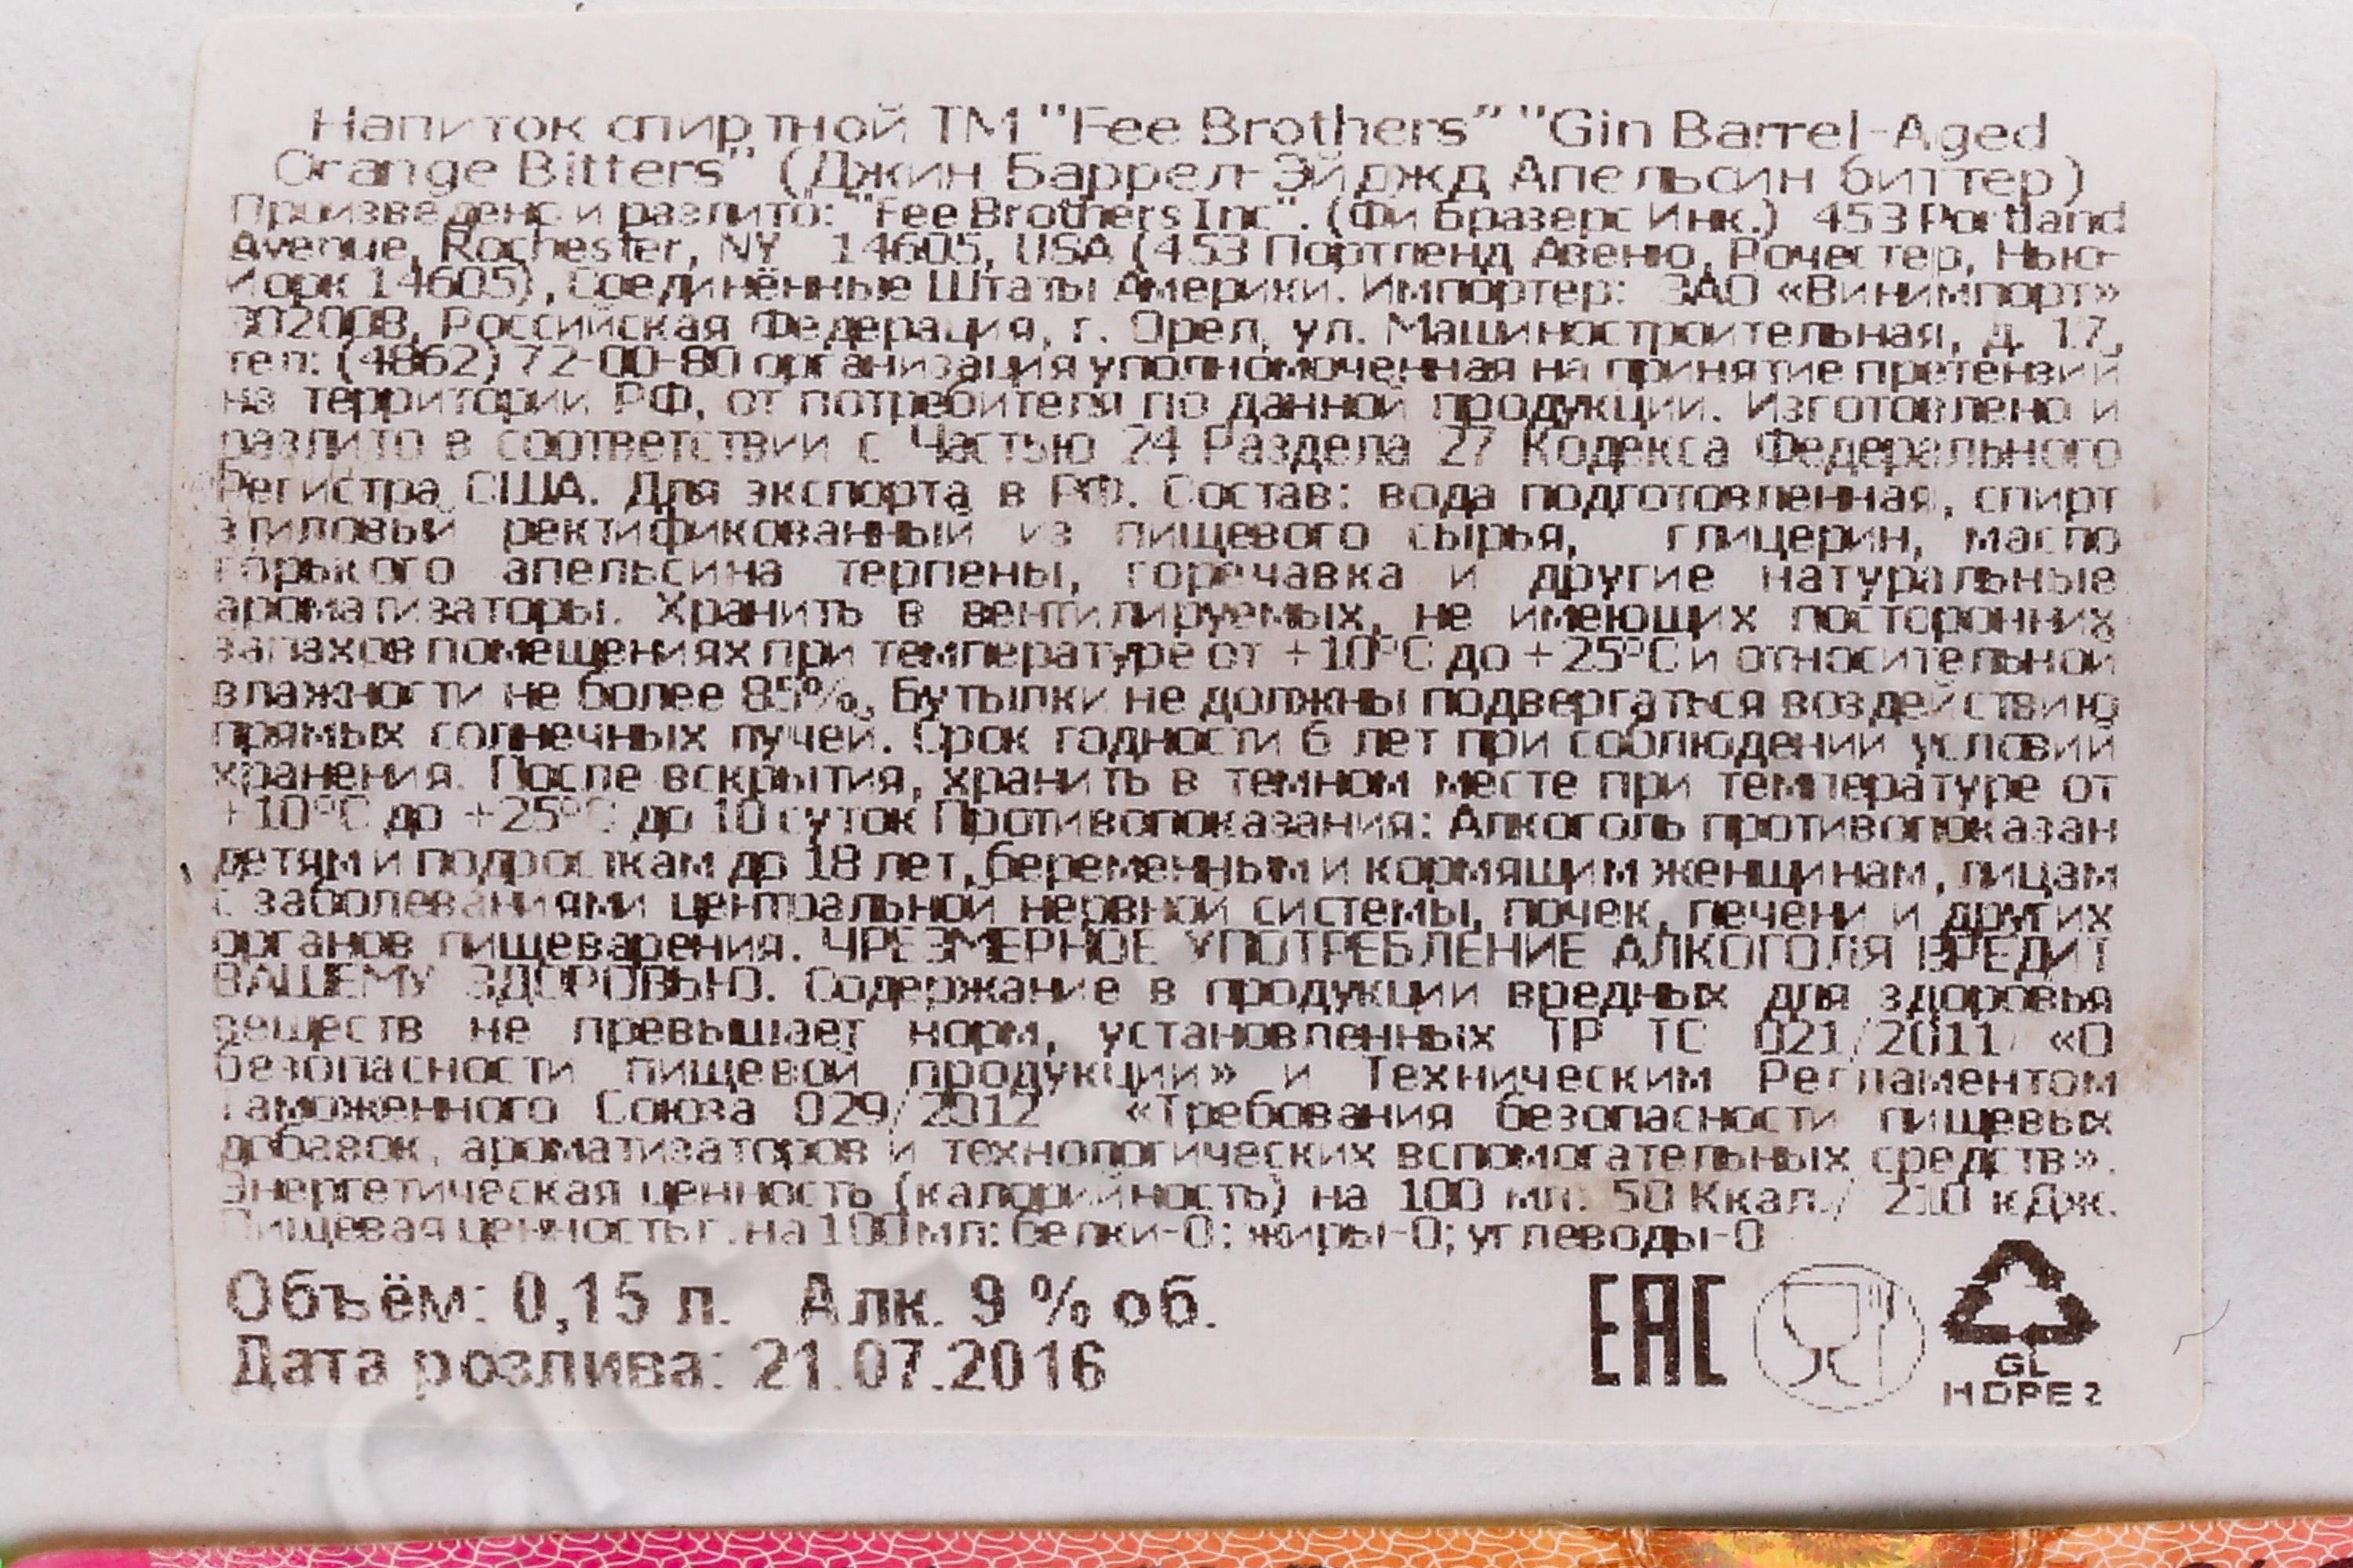 Напиток спиртной ТМ "Fee Brothers" "Gin Barrel-Aged
Orange Bitters" (Джин Баррел-Эйджд Апельсин биттер)
Произведено и разлито: "Fee Brothers Inc". (Фи Бразерс Инк.) 453 Portland
Avenue, Rochester, NY 14605, USA (453 Портленд Авеню, Рочестер, Нью-
Йорк 14605), Соединённые Штаты Америки. Импортер: ЗАО «Винимпорт»
302008, Российская Федерация, г. Орел, ул. Машиностроительная, д. 17,
тел: (4862) 72-00-80 организация уполномоченная на принятие претензий
на территории РФ, от потребителя по данной продукции. Изготовлено и
разлито в соответствии с Частью 24 Раздела 27 Кодекса Федерального
Регистра США. Для экспорта в РФ. Состав: вода подготовленная, спирт
этиловый ректификованный из пищевого сырья, глицерин, масло
горького апельсина терпены, горечавка и другие натуральные
ароматизаторы. Хранить в вентилируемых, не имеющих посторонних
запахов помещениях при температуре от +10°С до +25°С и относительной
влажности не более 85%, Бутылки не должны подвергаться воздействию
прямых солнечных лучей. Срок годности 6 лет при соблюдении условий
хранения. После вскрытия, хранить в темном месте при температуре от
+10°С до +25°С до 10 суток Противопоказания: Алкоголь противопоказан
детям и подросткам до 18 лет, беременным и кормящим женщинам, лицам
с заболеваниями центральной нервной системы, почек, печени и других
органов пищеварения. ЧРЕЗМЕРНОЕ УПОТРЕБЛЕНИЕ АЛКОГОЛЯ ВРЕДИТ
ВАШЕМУ ЗДОРОВЬЮ. Содержание в продукции вредных для здоровья
веществ не превышает норм, установленных ТР ТС 021/2011 «О
безопасности пищевой продукции» и Техническим Регламентом
Таможенного Союза 029/2012 «Требования безопасности пищевых
добавок, ароматизаторов и технологических вспомогательных средств».
Энергетическая ценность (калорийность) на 100 мл: 50 Ккал./ 210 кДж.
Пищевая ценность г. на 100 мл: белки-0; жиры-0; углеводы-0
Объём: 0,15 л. Алк. 9 % об.
Дата розлива: 21.07.2016
EAC
GL
HDPE 2